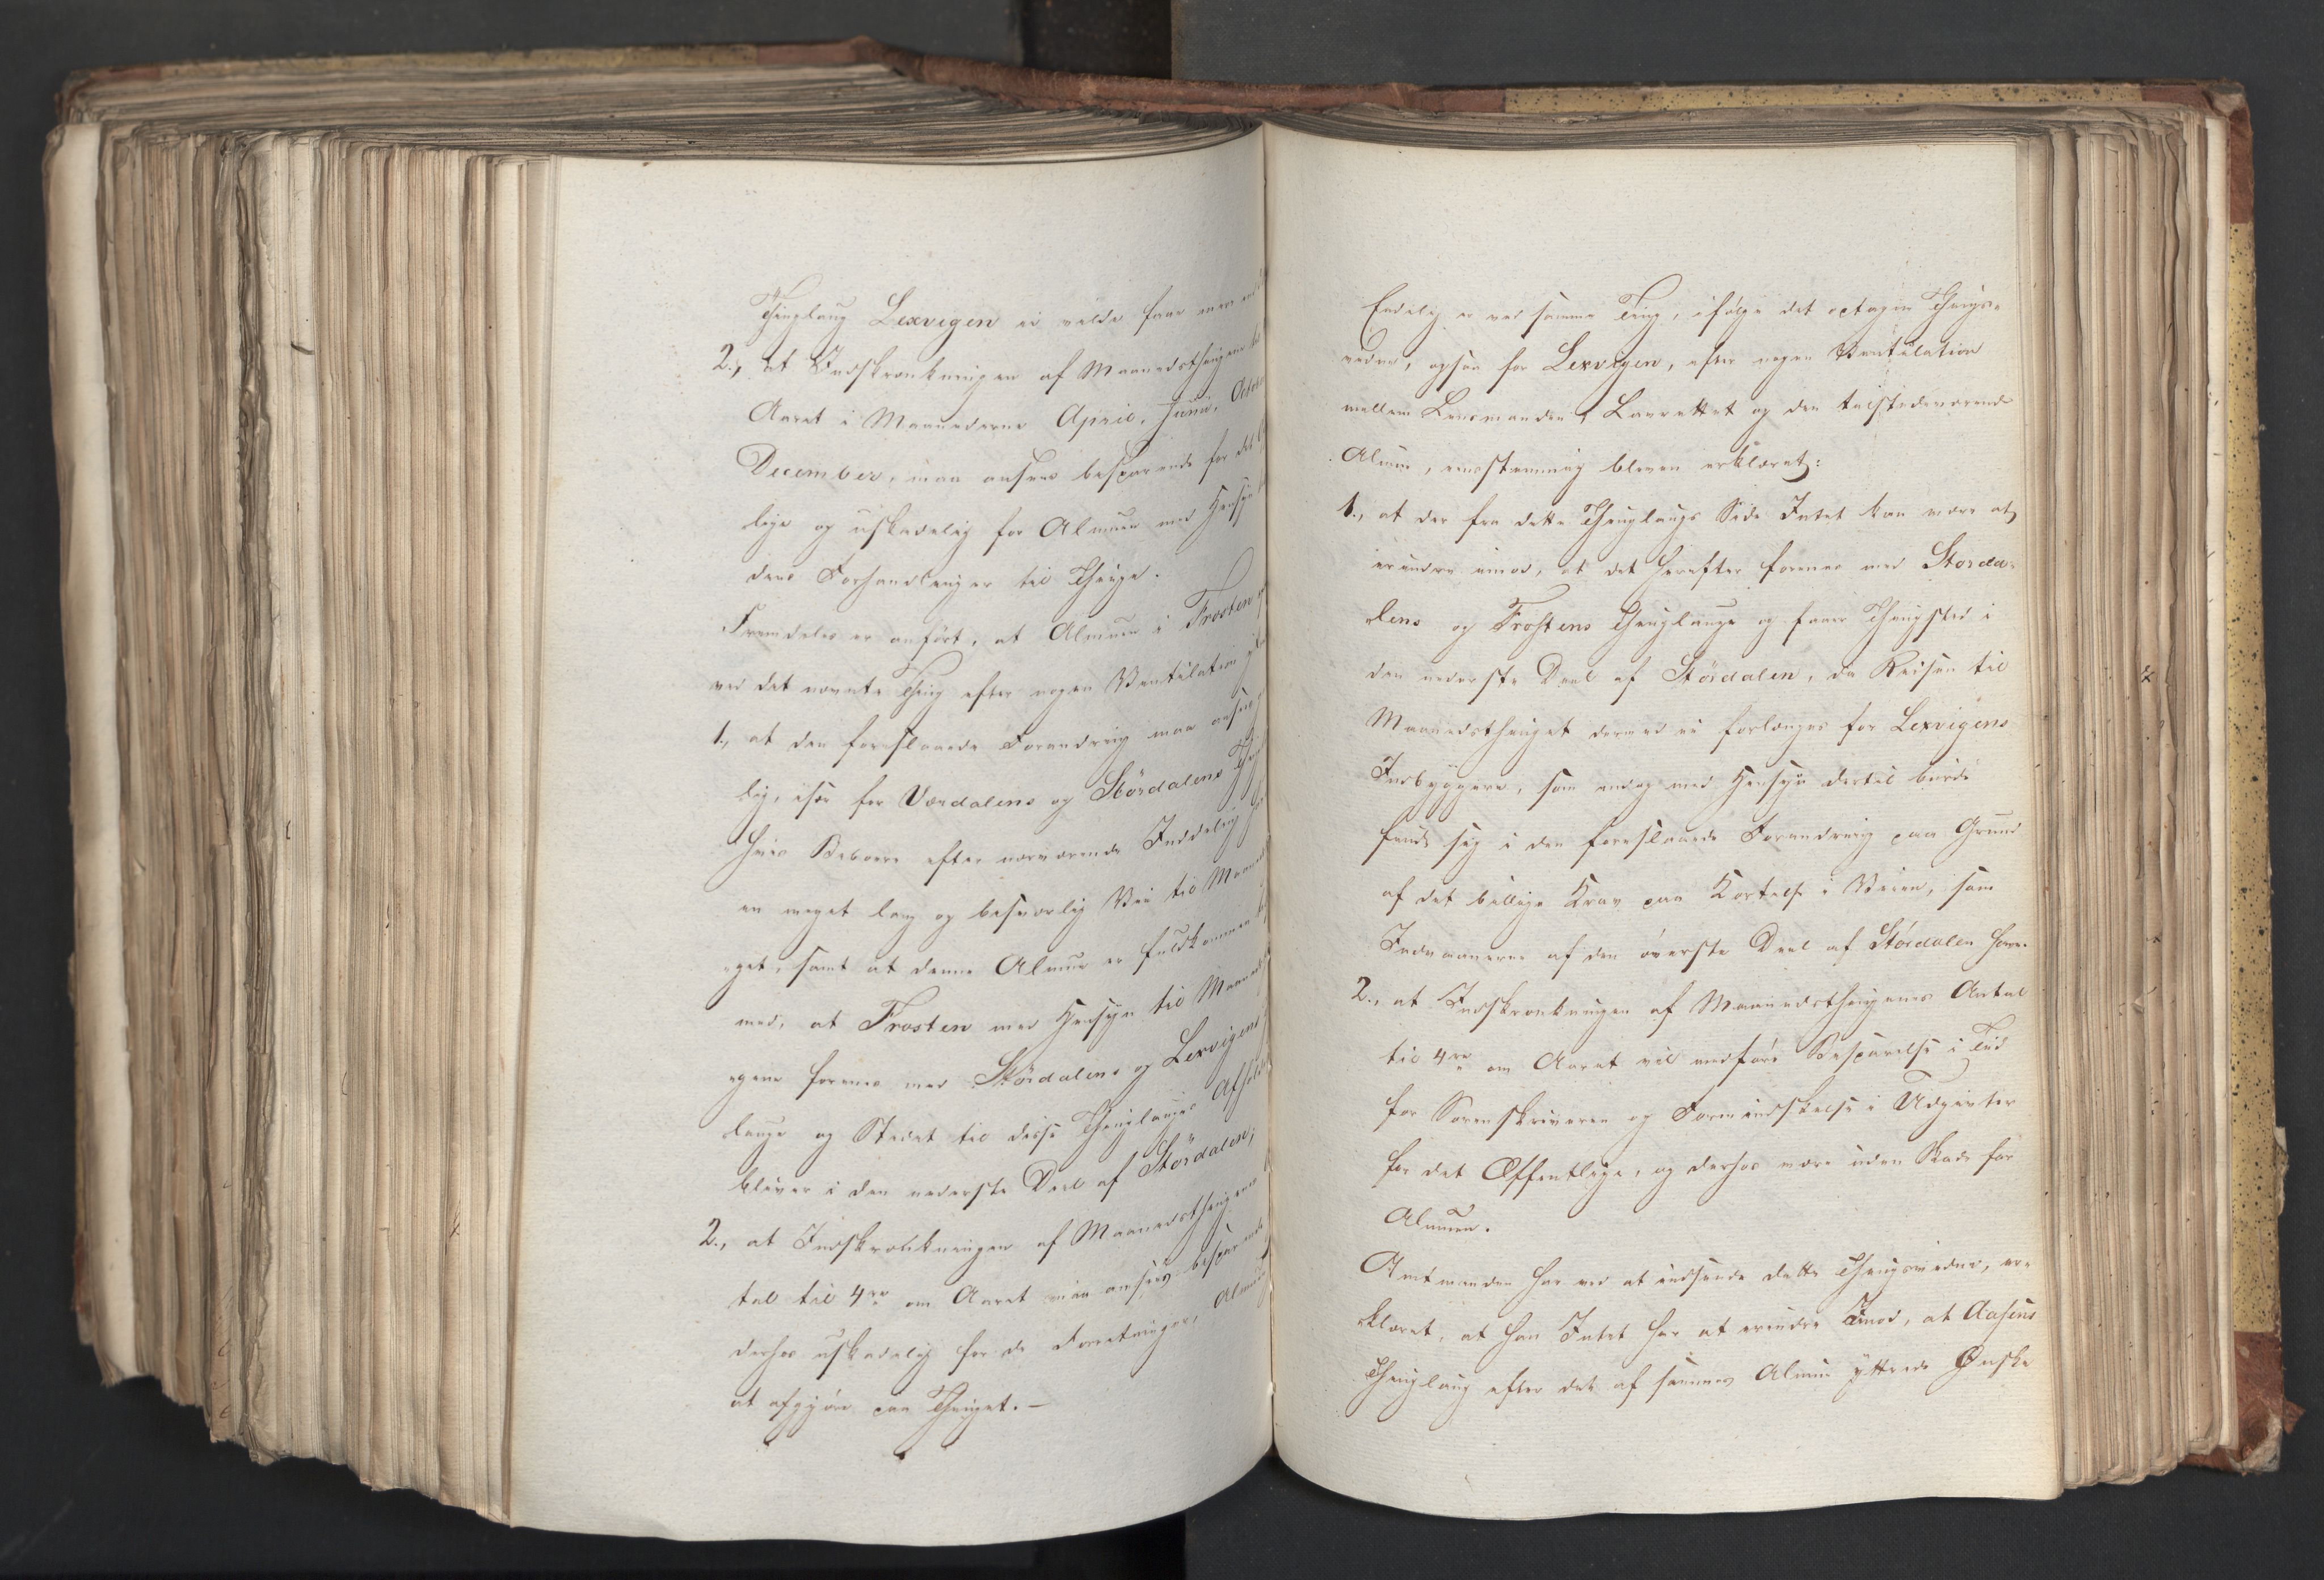 Thinglaug Lexvigen ei vilde faae mere
2., at Indskrænkningen af Maanedsthingene
Aaret i Maanederne April, Juni, Octob
December, maa ansees besparende for det
lige og uskadelig for Almuen med Hensyn
dens Forhandlinger til Thinge.
Fremdeles er anført, at Almuen i Frosten
ved det nævnte Thing efter nogen Ventilation
1., at den foreslaaede Forandring maa ansees
lig, især for Værdalens og Størdalens
hvis Beboere efter nærværende Inddeling
en meget lang og besværlig Vei til Maaned
get, samt at denne Almue er fuldkommen
med, at Frosten med Hensyn til Maaned
gene forenes med Størdalens og Lexvigens
lauge og Stedet til disse Thinglauges Afhold
bliver i den nederste Deel af Størdalen;
2., at Indskrænkningen af Maanedsthingenes
tal til 4re om Aaret maa ansees besparende
derhos uskadelig for de Forretninger, Almuen
at afgjøre paa Thinget. –
Endelig er ved samme Ting, ifølge det optagne Things-
vidne, ogsaa for Lexvigen, efter nogen Ventilation
mellem Lensmanden, Laurettet og den tilstedeværende
Almue, eenstemmig bleven erklæret:
1., at der fra dette Thinglaugs Side Intet kan være at
erindre imod, at det herefter forenes med Størda-
lens og Frostens Thinglauge og faaer Thingsted i
den nederste Deel af Størdalen, da Reisen til
Maanedsthinget derved ei forlænges for Lexvigens
Indbyggere, som endog med Hensyn dertil burde
finde sig i den foreslaaede Forandring paa Grund
af det billige Krav paa Kortelse i Veien, som
Indvaanerne af den øverste Deel af Størdalen have.
2., at Indskrænkningen af Maanedsthingenes Antal
til 4re om Aaret vil medføre Besparelse i Tid
for Sorenskriveren og Formindskelse i Udgivter
for det Offentlige, og derhos være uden Skade for
Almuen.
Amtmanden har ved at indsende dette Thingsvidne, er-
klæret, at han Intet har at erindre imod, at Aasens
Thinglaug efter det af sammes Almue yttrede Ønske